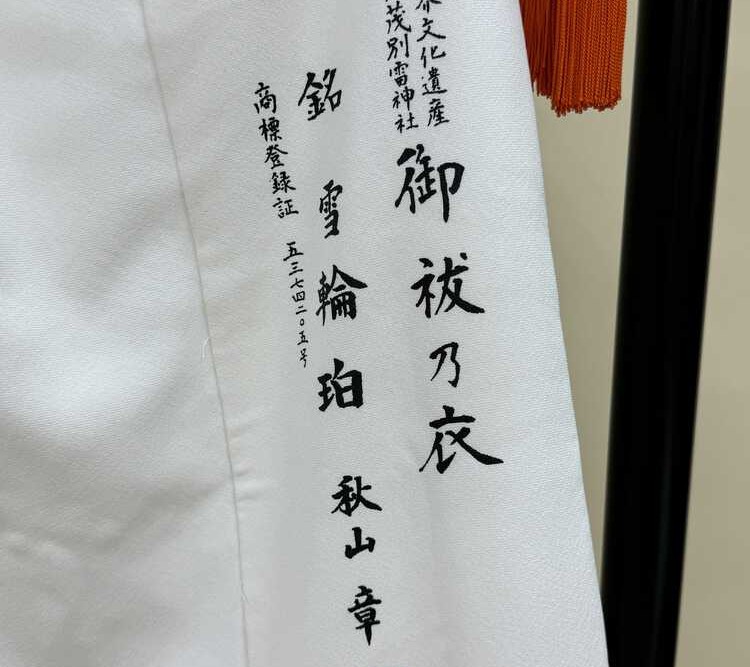 界文化遺産
茂別雷神社
御祓乃衣
銘 雪輪珀 秋山章
商標登録証 五三七四二〇五号